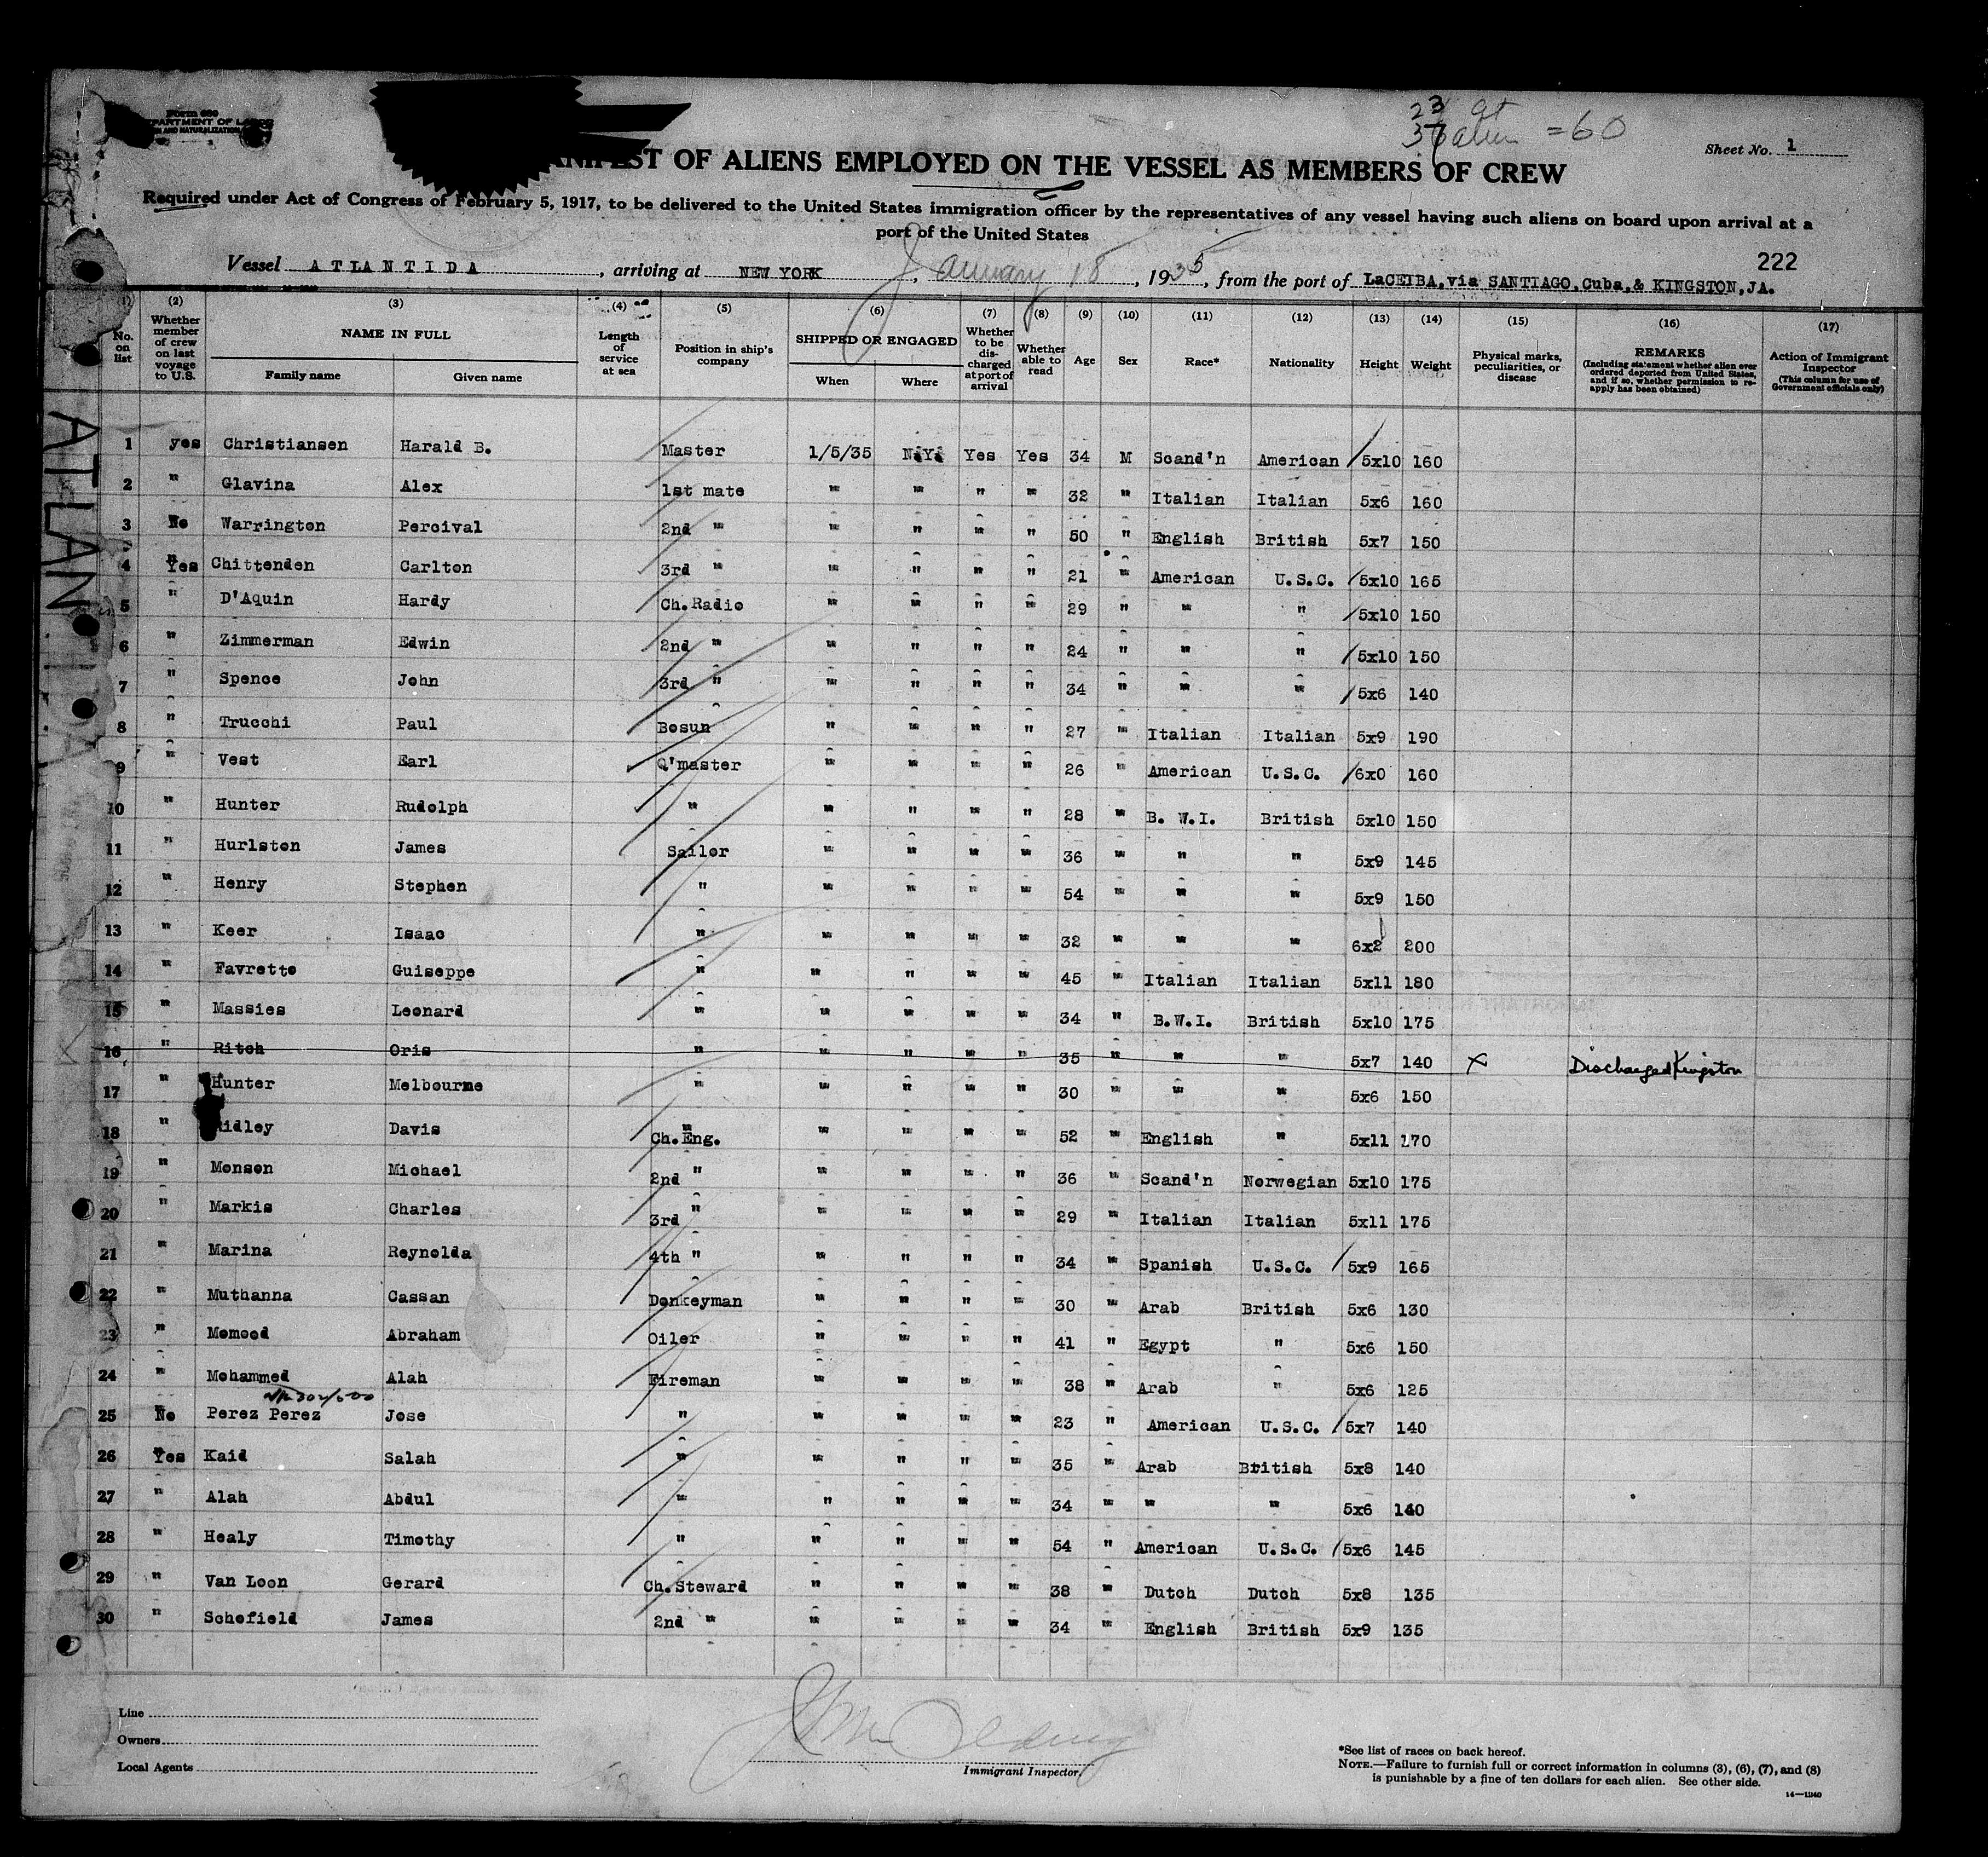 Form 680
DEPARTMENT OF LABOR
AND NATURALIZATION
23 at
37 alien =60
Sheet No. 1
MANIFEST OF ALIENS EMPLOYED ON THE VESSEL AS MEMBERS OF CREW
Required under Act of Congress of February 5, 1917, to be delivered to the United States immigration officer by the representatives of any vessel having such aliens on board upon arrival at a
port of the United States
222
Vessel ATLANTIDA, arriving at NEW YORK, January 18, 1935, from the port of LaCEIBA, via SANTIAGO, Cuba, & KINGSTON, JA.
(1) (2) (3) (4) (5) (6) (7) (8) (9) (10) (11) (12) (13) (14) (15) (16) (17)
No. on list
Whether member of crew on last voyage to U.S.
NAME IN FULL
Family name Given name
Length of service at sea
Position in ship's company
SHIPPED OR ENGAGED
When Where
Whether to be discharged at port of arrival
Whether able to read
Age Sex Race* Nationality Height Weight
Physical marks, peculiarities, or disease
REMARKS
(Including statement whether alien ever ordered deported from United States, and if so, whether permission to reapply has been obtained)
Action of Immigrant Inspector
(This column for use of Government officials only)
ATLAN
1 yes Christiansen Harald B. Master 1/5/35 N.Y. Yes Yes 34 M Scand'n American 5x10 160
2 " Glavina Alex 1st mate " " " " 32 " Italian Italian 5x6 160
3 No Warrington Percival 2nd " " " " " 50 " English British 5x7 150
4 Yes Chittenden Carlton 3rd " " " " " 21 " American U.S.C. 5x10 165
5 " D'Aquin Hardy Ch.Radio " " " " 29 " " " 5x10 150
6 " Zimmerman Edwin 2nd " " " " " 24 " " " 5x10 150
7 " Spence John 3rd " " " " " 34 " " " 5x6 140
8 " Trucchi Paul Bosun " " " " 27 " Italian Italian 5x9 190
9 " Vest Earl Q'master " " " " 26 " American U.S.C. 6x0 160
10 " Hunter Rudolph " " " " " 28 " B. W.I. British 5x10 150
11 " Hurlston James Sailor " " " " 36 " " " 5x9 145
12 " Henry Stephen " " " " " 54 " " " 5x9 150
13 " Keer Isaac " " " " " 32 " " " 6x2 200
14 " Favretto Guiseppe " " " " " 45 " Italian Italian 5x11 180
15 " Massies Leonard " " " " " 34 " B.W.I. British 5x10 175
16 " Ritch Oris " " " " " 35 " " " 5x7 140 x Discharged Kingston
17 " Hunter Melbourne " " " " " 30 " " " 5x6 150
18 " Ridley Davis Ch.Eng. " " " " 52 " English " 5x11 170
19 " Monson Michael 2nd " " " " " 36 " Scand'n Norwegian 5x10 175
20 " Markis Charles 3rd " " " " " 29 " Italian Italian 5x11 175
21 " Marina Reynolda 4th " " " " " 34 " Spanish U.S.C. 5x9 165
22 " Muthanna Cassan Donkeyman " " " " 30 " Arab British 5x6 130
23 " Momood Abraham Oiler " " " " 41 " Egypt " 5x6 150
24 " Mohammed Alah Fireman " " " " 38 " Arab " 5x6 125
25 No Perez Perez Jose " " " " " 23 " American U.S.C. 5x7 140
26 Yes Kaid Salah " " " " " 35 " Arab British 5x8 140
27 " Alah Abdul " " " " " 34 " " " 5x6 140
28 " Healy Timothy " " " " " 54 " American U.S.C. 5x6 145
29 " Van Loon Gerard Ch.Steward " " " " 38 " Dutch Dutch 5x8 135
30 " Schofield James 2nd " " " " " 34 " English British 5x9 135
Line
Owners
Local Agents
Immigrant Inspector.
*See list of races on back hereof.
NOTE.—Failure to furnish full or correct information in columns (3), (6), (7), and (8)
is punishable by a fine of ten dollars for each alien. See other side.
14—1240